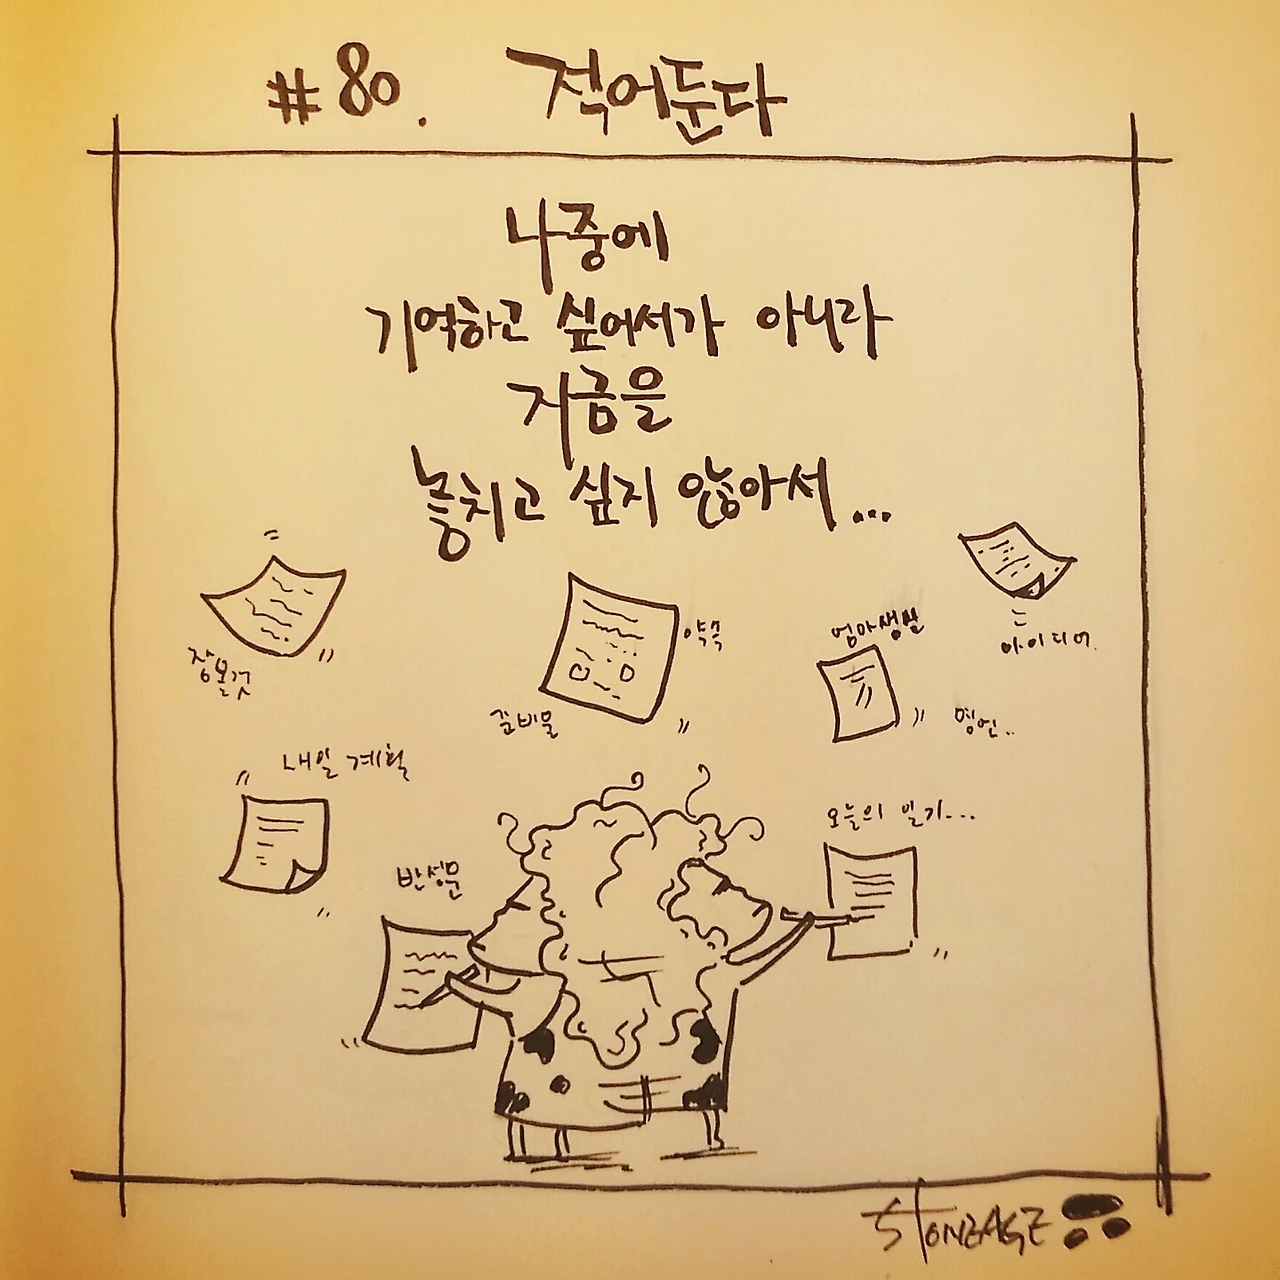 #80. 적어둔다
나중에
기억하고 싶어서가 아니라
지금을
놓치고 싶지 않아서...
장볼것
약속
준비물
엄마생일
아이디어.
명언..
내일 계획
오늘의 일기...
반성문
STONEAGE